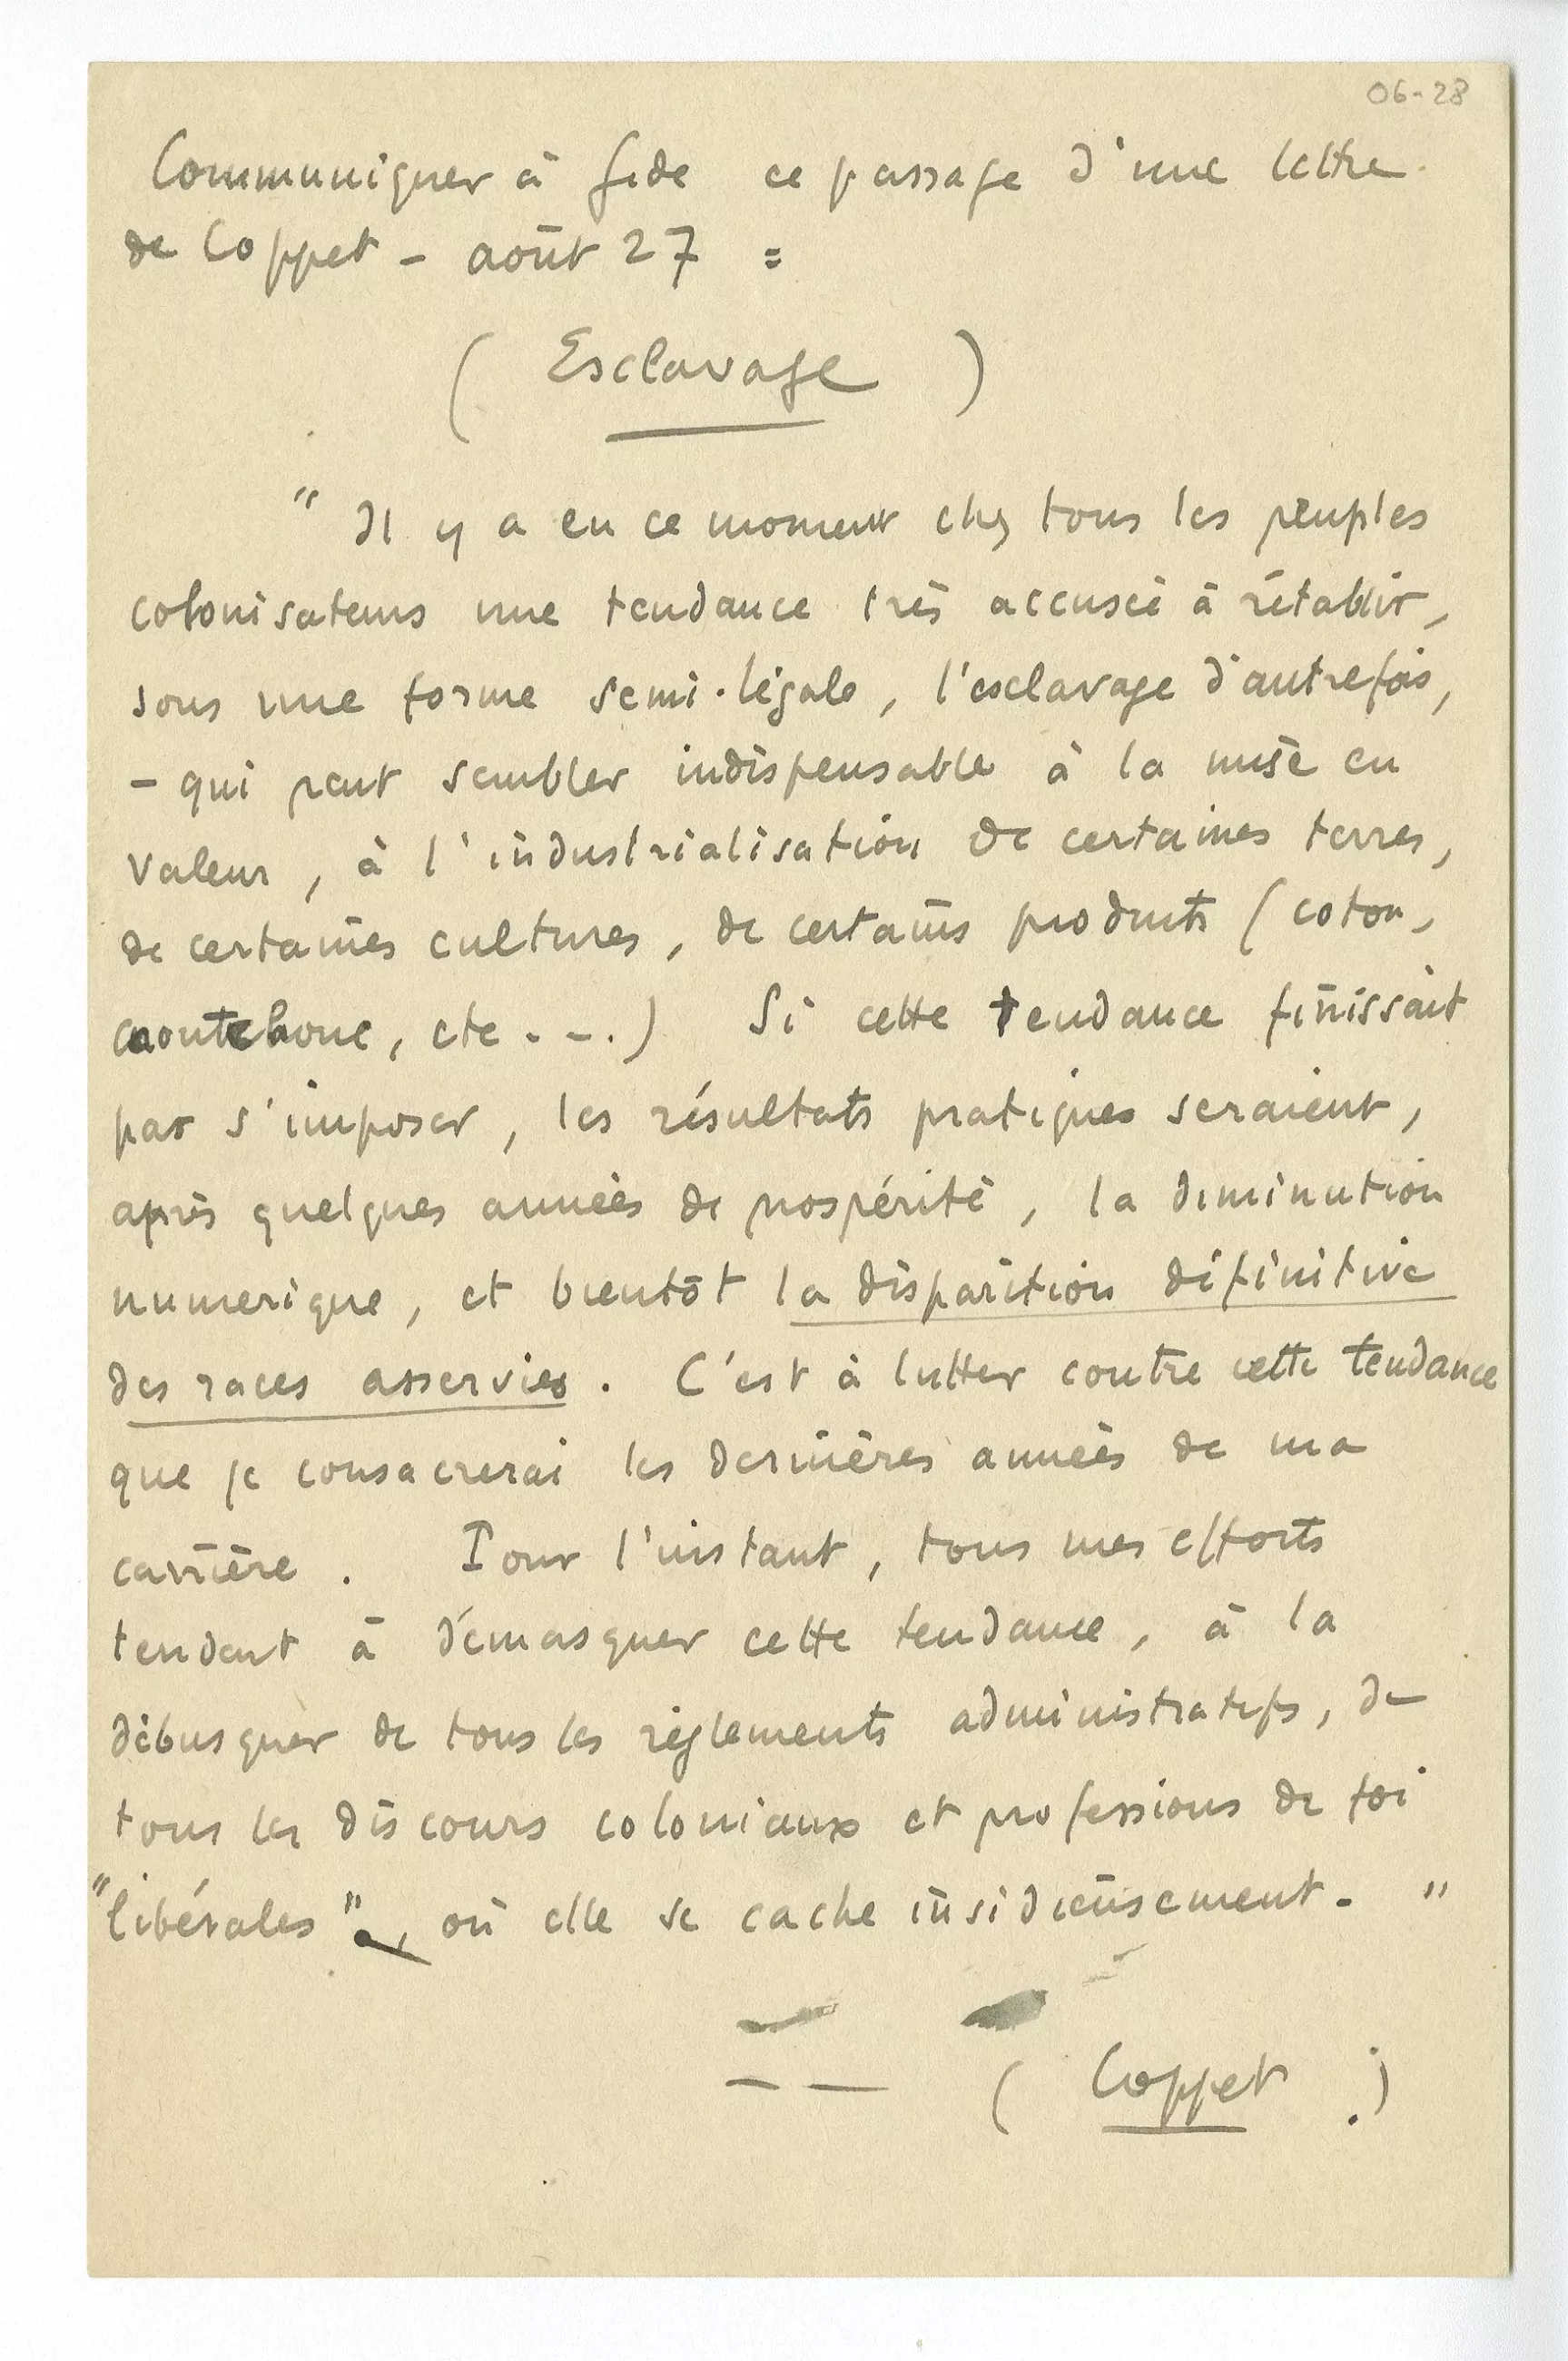 06-28
Communiquer à Gide ce passage d'une lettre
de Coppet - août 27 =
( Esclavage )
" Il y a en ce moment chez tous les peuples
colonisateurs une tendance très accusée à rétablir,
sous une forme semi-légale, l'esclavage d'autrefois,
- qui peut sembler indispensable à la mise en
valeur, à l'industrialisation de certaines terres,
de certaines cultures, de certains produits (coton,
caoutchouc, etc...) Si cette tendance finissait
par s'imposer, les résultats pratiques seraient,
après quelques années de prospérité, la diminution
numerique, et bientôt la disparition définitive
des races asservies. C'est à lutter contre cette tendance
que je consacrerai les dernières années de ma
carrière. Pour l'instant, tous mes efforts
tendent à démasquer cette tendance, à la
débusquer de tous les règlements administratifs, de
tous les discours coloniaux et professions de foi
"libérales", où elle se cache insidieusement. "
-- ( Coppet .)